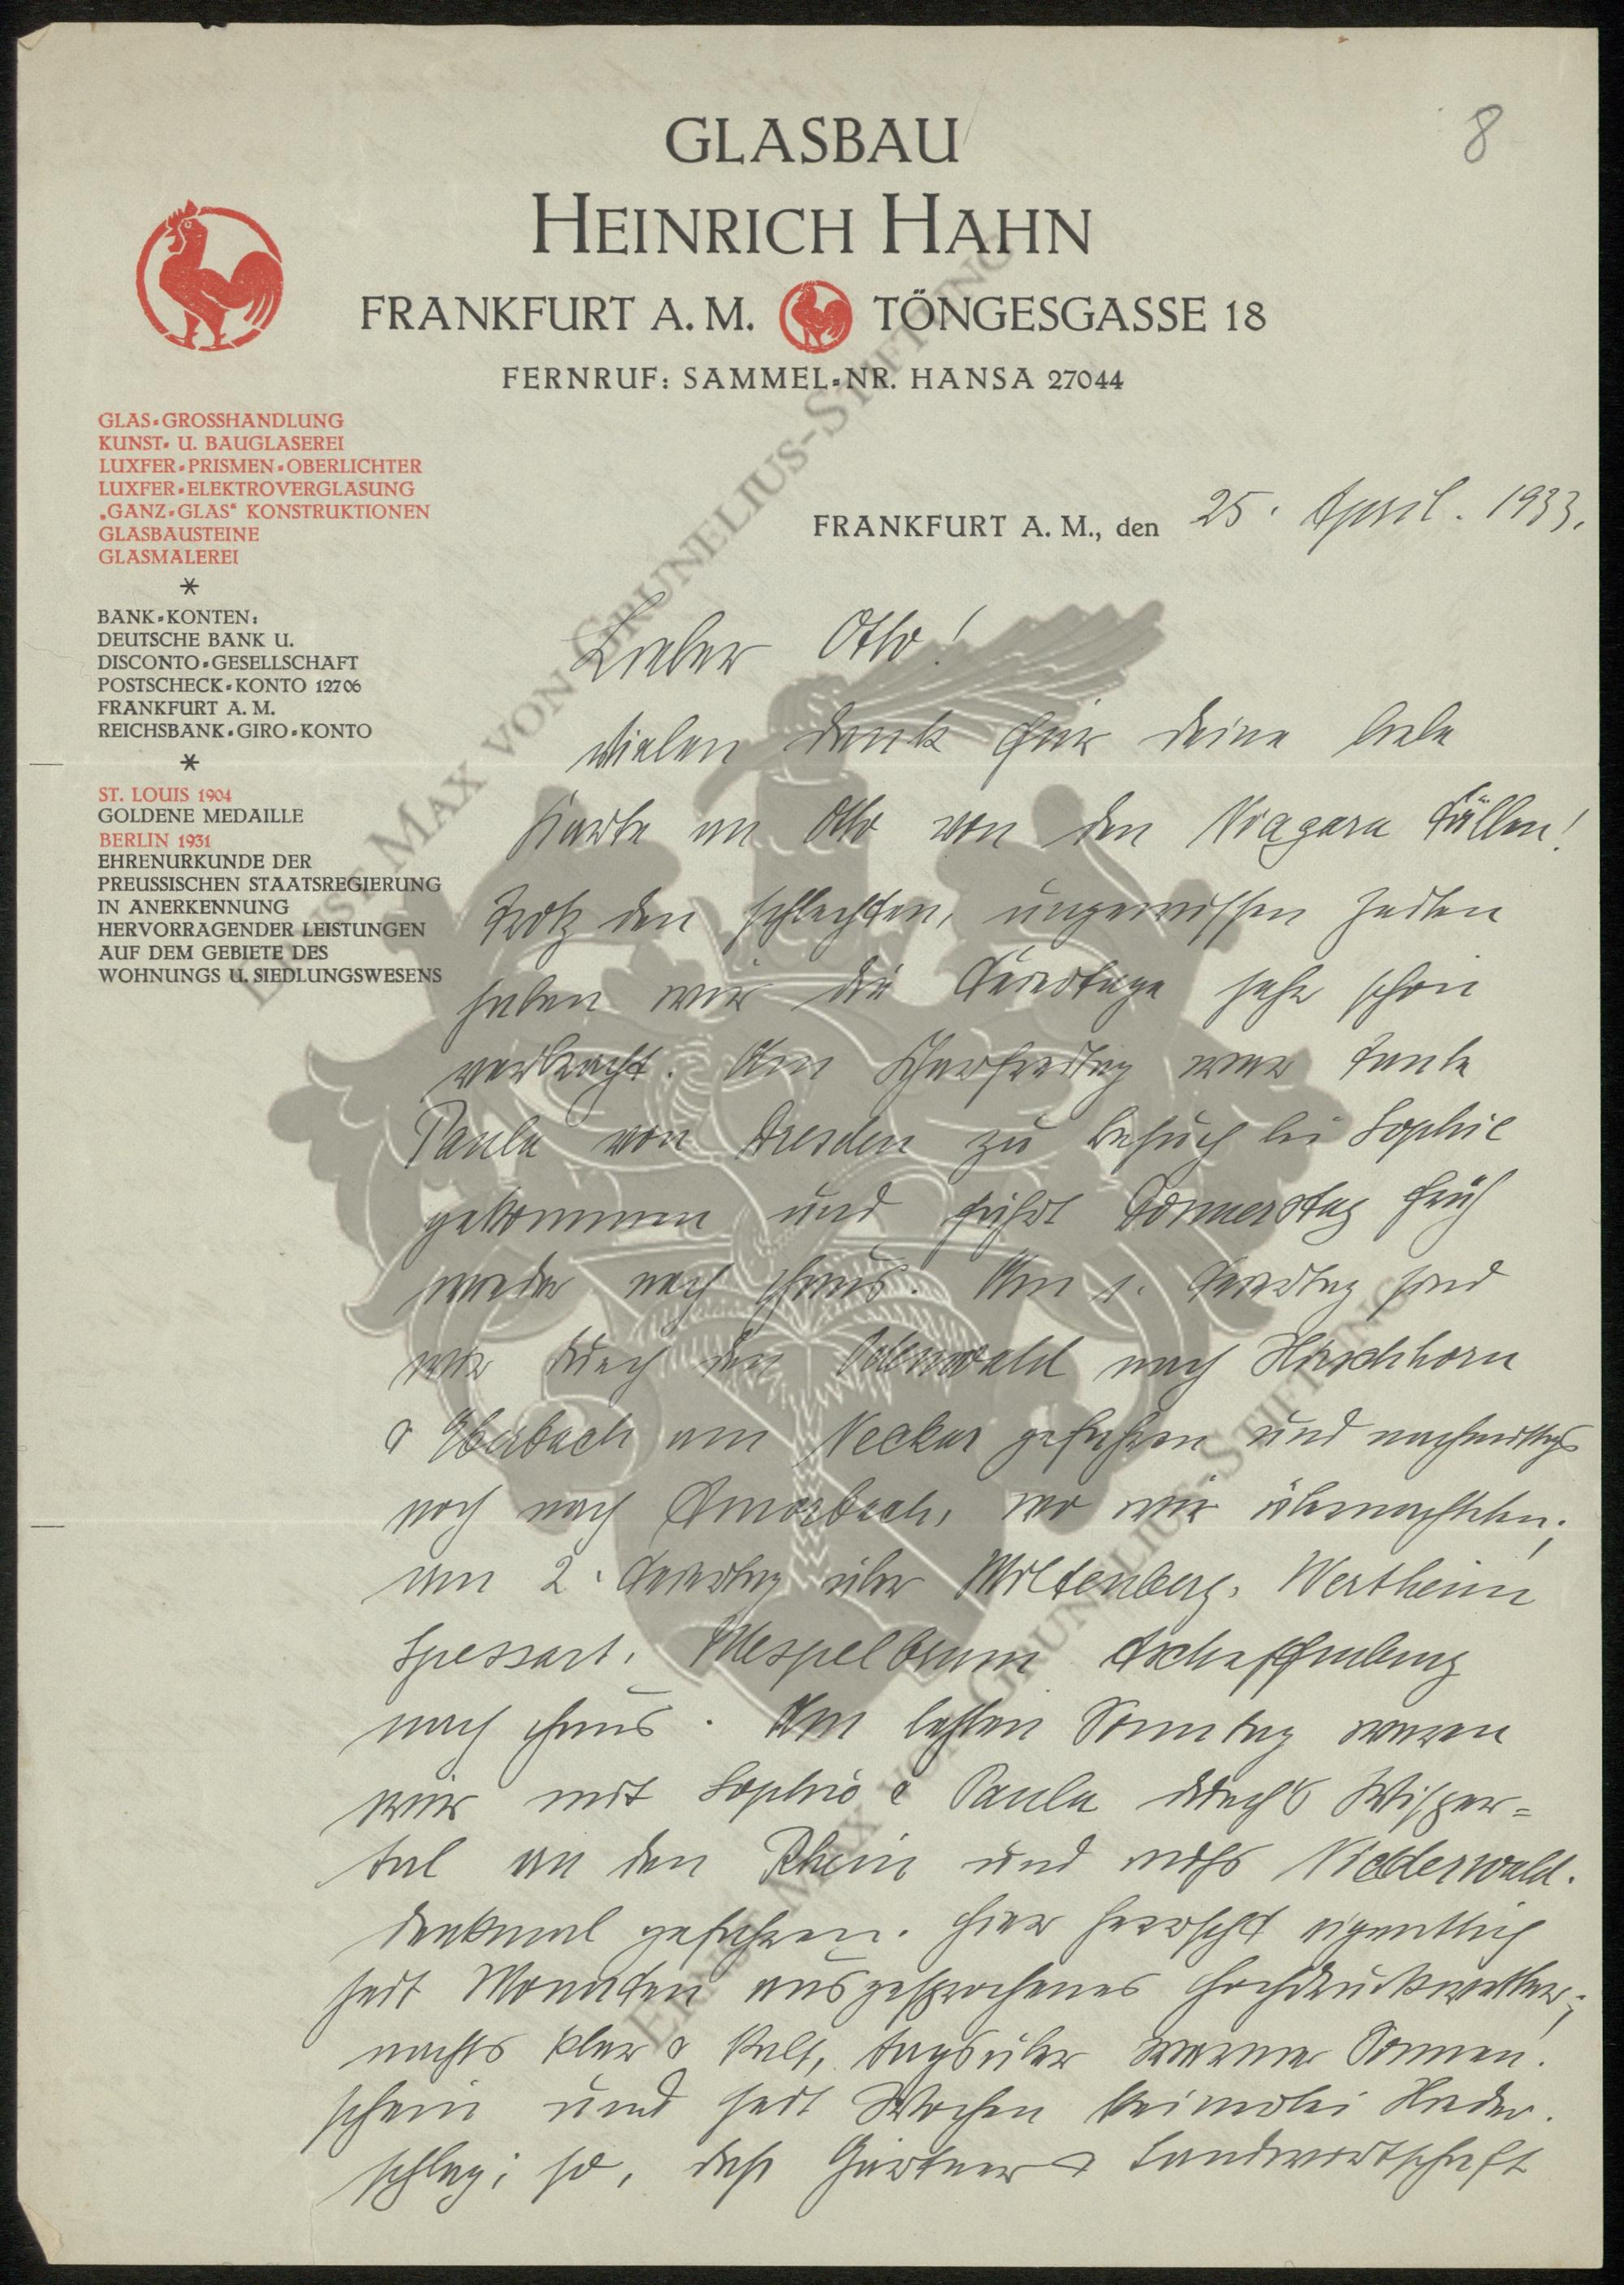 8
GLASBAU
HEINRICH HAHN
FRANKFURT A. M. TÖNGESGASSE 18
FERNRUF: SAMMEL-NR. HANSA 27044
GLAS-GROSSHANDLUNG
KUNST- U. BAUGLASEREI
LUXFER-PRISMEN-OBERLICHTER
LUXFER-ELEKTROVERGLASUNG
„GANZ-GLAS“ KONSTRUKTIONEN
GLASBAUSTEINE
GLASMALEREI
*
BANK-KONTEN:
DEUTSCHE BANK U.
DISCONTO-GESELLSCHAFT
POSTSCHECK-KONTO 12706
FRANKFURT A. M.
REICHSBANK-GIRO-KONTO
*
ST. LOUIS 1904
GOLDENE MEDAILLE
BERLIN 1931
EHRENURKUNDE DER
PREUSSISCHEN STAATSREGIERUNG
IN ANERKENNUNG
HERVORRAGENDER LEISTUNGEN
AUF DEM GEBIETE DES
WOHNUNGS U. SIEDLUNGSWESENS
FRANKFURT A. M., den 25. April. 1933.
Lieber Otto!
Vielen Dank für Deine liebe
Karte an Otto von den Niagara Fällen!
Trotz den schlechten, ungewissen Zeiten
haben wir die Feiertage sehr schön
verbracht. Am Charfreitag war Tante
Paula von Dresden zu Besuch bei Sophie
gekommen und fährt Donnerstag früh
wieder nach Haus. Am 1. Feiertag sind
wir durch den Odenwald nach Hirschhorn
& Eberbach am Neckar gefahren und nachmittags
noch nach Amorbach, wo wir übernachteten;
am 2. Feiertag über Miltenberg, Wertheim
Spessart, Mespelbrunn Aschaffenburg
nach Haus. Am letzten Sonntag waren
wir mit Sophie & Paula durchs Wisper=
tal an den Rhein und aufs Niederwald.
denkmal gefahren. Hier herrscht eigentlich
seit Monaten ausgesprochenes Hochdruckwetter;
nachts klar & kalt, tagsüber warmer Sonnen.
schein und seit Wochen keinerlei Nieder.
schlag; so, dass Gärtner & Landwirtschaft
ERNST MAX VON GRUNELIUS-STIFTUNG
ERNST MAX VON GRUNELIUS-STIFTUNG